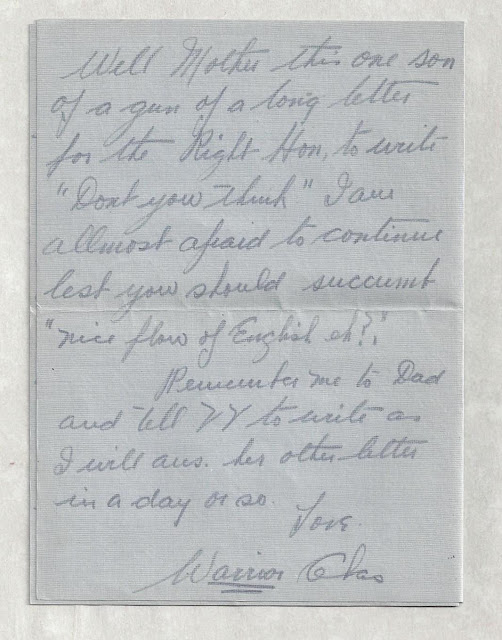 Well Mother this one son
of a gun of a long letter
for the Right Hon, to write
"Dont you think" I am
allmost afraid to continue
lest you should succumb
"nice flow of English eh?,"
Remember me to Dad
and tell VV to write as
I will ans. her other letter
in a day or so.
Love.
Warrior Chas